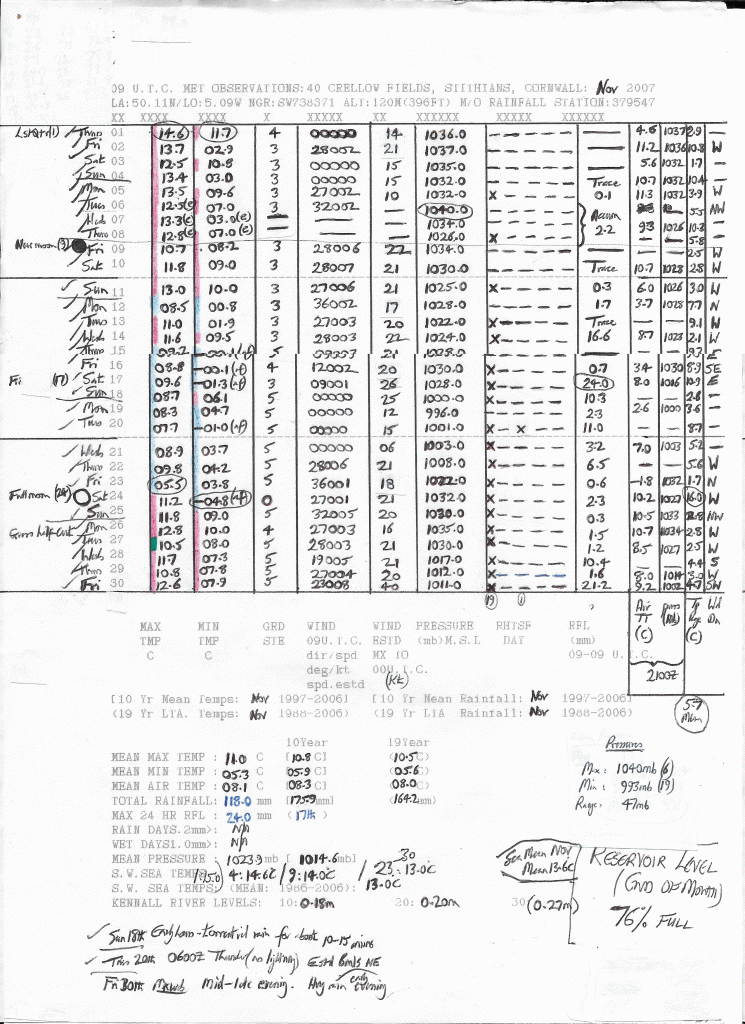 09 U.T.C. MET OBSERVATIONS:40 CRELLOW FIELDS, STITHIANS, CORNWALL: Nov 2007
LA:50.11N/LO:5.09W NGR:SW738371 ALT:120M(396FT) M/O RAINFALL STATION:379547
XX XXXX XXXX X XXXXX XX XXXXXX XXXXX XXXXXX
Lst Qtr (1) Thurs 01 14.6 11.7 4 00000 14 1036.0 ------ — 4.6 1037 2.9 —
Fri 02 13.7 02.9 3 28002 21 1037.0 ------ — 11.2 1036 10.8 W
Sat 03 12.5 10.8 3 00000 15 1035.0 ------ — 5.6 1032 1.7 —
Sun 04 13.4 03.0 3 00000 15 1032.0 ------ Trace 10.7 1032 10.4 —
Mon 05 13.5 09.6 3 27002 10 1032.0 X----- 0.1 11.3 1032 3.9 W
Tues 06 12.5(e) 07.0 3 32002 — 1040.0 5.5 NW
Weds 07 13.3(e) 03.0(e) — — — 1034.0 Accum 2.2 9.3 1026 10.3 —
Thurs 08 12.8(e) 07.0(e) — — — 1026.0 X 5.8 —
New moon (9) Fri 09 10.7 08.2 3 28006 22 1034.0 2.5 W
Sat 10 11.8 09.0 3 28007 21 1030.0 ------ Trace 10.7 1028 2.8 W
Sun 11 13.0 10.0 3 27006 21 1025.0 X----- 0.3 6.0 1026 3.0 W
Mon 12 08.5 00.8 3 36002 17 1028.0 ------ 1.7 3.7 1028 7.7 N
Tues 13 11.0 01.9 3 27003 20 1022.0 X----- Trace 9.1 W
Weds 14 11.6 09.5 3 28003 22 1024.0 X----- 16.6 8.7 1023 2.1 W
Thurs 15 09.2 5 21 1028.0 9.3 E
Fri 16 08.8 -00.1(+f) 4 12002 20 1030.0 X----- 0.7 3.4 1030 8.9 SE
Fri (17) Sat 17 09.6 -01.3(+f) 3 09001 26 1028.0 X----- 24.0 8.0 1016 10.9 E
Sun 18 08.7 06.1 5 00000 25 1000.0 X----- 10.3 2.8 —
Mon 19 08.3 04.7 5 00000 12 996.0 ------ 2.3 2.6 1000 3.6 —
Tues 20 07.7 -01.0(+f) 5 00000 15 1001.0 X-X--- 11.0 8.7 —
Weds 21 08.9 03.7 5 00000 06 1003.0 X----- 3.2 7.0 1003 5.2 —
Thurs 22 09.8 04.2 5 28006 21 1008.0 X----- 6.5 5.6 W
Fri 23 05.5 03.8 5 36001 18 1022.0 X----- 0.6 -1.8 1032 1.7 N
Full moon (24) Sat 24 11.2 -04.8(+f) 0 27001 21 1032.0 X----- 2.3 10.2 1027 16.0 W
Sun 25 11.8 09.0 5 32005 20 1030.0 X----- 0.3 10.5 1033 2.8 NW
Mon 26 12.8 10.0 4 27003 16 1035.0 X----- 1.5 10.7 1034 2.8 W
Tues 27 10.5 08.0 5 28003 21 1030.0 X----- 1.2 8.5 1027 2.5 W
Weds 28 11.7 07.3 5 19005 21 1017.0 X----- 10.4 4.4 S
Thurs 29 10.8 07.8 5 27004 40 1012.0 X----- 1.6 8.0 1014 3.0 W
Fri 30 12.6 07.9 5 23008 40 1011.0 X----- 21.2 9.2 1002 4.7 SW
(19) (1)
MAX MIN GRD WIND WIND PRESSURE RHTSF RFL Air press Tp Wd
TMP TMP STE 09U.T.C. ESTD (mb)M.S.L DAY (mm) TT (mb) Rge Dn
C C dir/spd MX TO 09-09 U.T.C. (C) (C)
deg/kt 00U.T.C. 2100Z
spd.estd (Kt)
[10 Yr Mean Temps: Nov 1997-2006] [10 Yr Mean Rainfall: Nov 1997-2006]
(19 Yr LTA. Temps: Nov 1988-2006) (19 Yr LTA Rainfall: Nov 1988-2006)
5.7 Mean
10Year 19Year
MEAN MAX TEMP : 11.0 C [10.8 C] (10.5 C)
MEAN MIN TEMP : 05.3 C [05.9 C] (05.6 C)
MEAN AIR TEMP : 08.1 C [08.3 C] (08.0 C)
TOTAL RAINFALL: 118.0 mm [175.9mm] (164.2mm)
MAX 24 HR RFL : 24.0 mm (17th)
RAIN DAYS.2mm): N/A
WET DAYS1.0mm): N/A
MEAN PRESSURE : 1023.9 mb [ 1014.6 mb]
Pressures
Max: 1040mb (6)
Min: 993mb (19)
Range: 47mb
S.W.SEA TEMP: 1/15.0 4:14.6C / 9:14.0C / 23:13.0C 30 13.0C
S.W. SEA TEMPS: (MEAN: 1986-2006):
Sea Mean Nov
Mean 13.6C
KENNALL RIVER LEVELS: 10: 0.18m 20: 0.20m 30 (0.27m)
RESERVOIR LEVEL
(END OF MONTH)
76% FULL
Sun 18th torrential rain for about 10-15 mins
Tues 20th 0600Z Thunder (no lightning) Estd 8mls NE
Fri 30th Mid-late evening. Hvy rain early evening